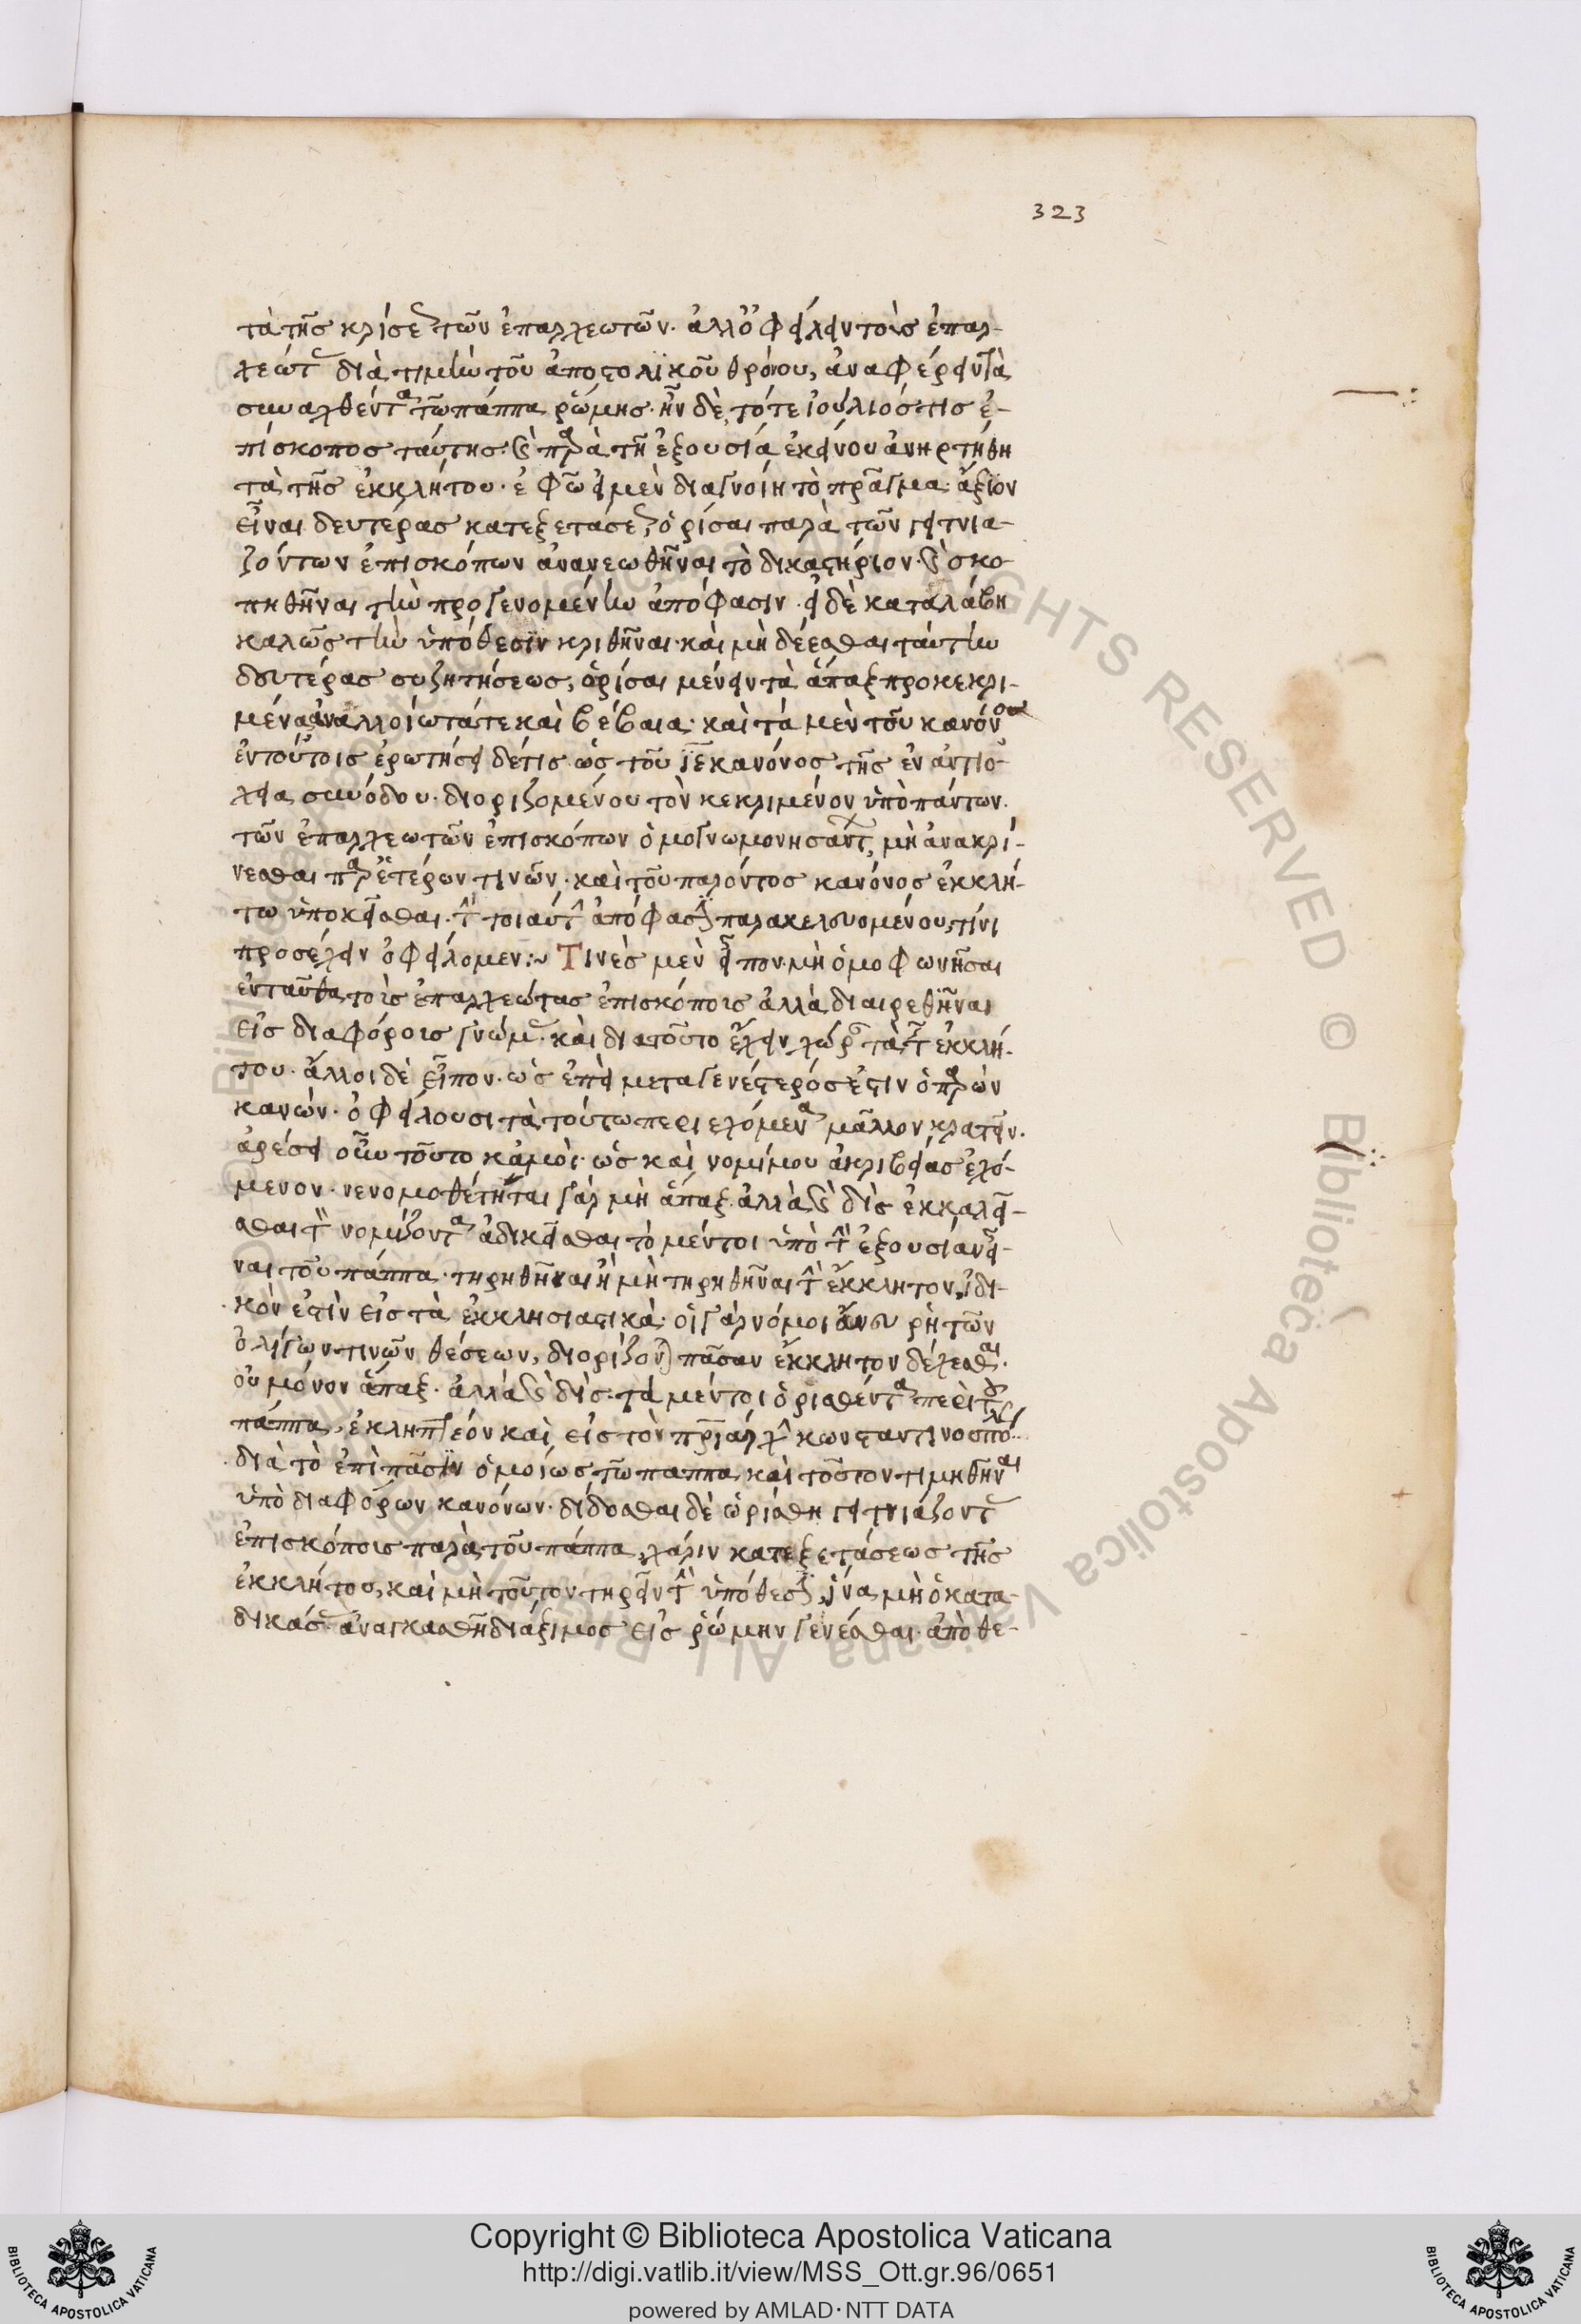 323
τὰ τῆς κρίσε τῶν ἐπαρχεωτῶν· ἀλλ' ὀφείλειν τοὺς ἐπαρ-
χεώτ διὰ τιμὴν τοῦ ἀποστολικοῦ θρόνου, ἀναφέρειν τὰ
συναχθέντα τῶ πάππα ῥώμης· ἦν δὲ τότε ἰούλιός τις ἐ-
πίσκοπος ταύτης· καὶ παρὰ τῆ ἐξουσία ἐκείνου ἀνηρτήθη
τὰ τῆς ἐκκλήτου· ἐφῶ εἰ μὲν διαγνοίη τὸ πρᾶγμα ἄξιον
εἶναι δευτέρας κατεξετάσε, ὁρίσαι παρὰ τῶν γειτνια-
ζόντων ἐπισκόπων ἀνανεωθῆναι τὸ δικαστήριον· καὶ σκο-
πηθῆναι τὴν προγενομένην ἀπόφασιν· εἰ δὲ καταλάβη
καλῶς τὴν ὑπόθεσιν κριθῆναι· καὶ μὴ δέεσθαι ταύτην
δευτέρας συζητήσεως, ὁρίσαι μένειν τὰ ἅπαξ προκεκρι-
μένα ἀναλλοίωτά τε καὶ βέβαια· καὶ τὰ μὲν τοῦ κανόνος
ἐν τούτοις ἐρωτήσει δέ τις ὡς τοῦ ιε κανόνος τῆς ἐν ἀντιο-
χεία συνόδου· διοριζομένου τὸν κεκριμένον ὑπὸ πάντων
τῶν ἐπαρχεωτῶν ἐπισκόπων ὁμογνωμονησάντ, μὴ ἀνακρί-
νεσθαι παρ' ἑτέρων τινῶν· καὶ τοῦ παρόντος κανόνος ἐκκλή-
τω ὑποκεῖσθαι· τ τοιαύτ ἀπόφασ παρακελευομένου, τίνι
προσέχειν ὀφείλομεν:~ Τινὲς μὲν εἶπον μὴ ὁμοφωνῆσαι
ἐνταῦθα τοὺς ἐπαρχεώτας ἐπισκόποις ἀλλὰ διαιρεθῆναι
εἰς διαφόροις γνώμ· καὶ διατοῦτο ἔχειν χώρ τὰ τ ἐκκλή-
του· ἄλλοι δὲ εἶπον· ὡς ἐπεὶ μεταγενέστερός ἐστιν ὁ παρὼν
κανών· ὀφείλουσι τὰ τούτω περιεχόμενα μᾶλλον κρατεῖν·
ἀρέσει οὖν τοῦτο κἀμοί· ὡς καὶ νομίμου ἀκριβείας ἐχό-
μενον· νενομοθέτηται γὰρ μὴ ἅπαξ ἀλλὰ καὶ δὶς ἐκκαλεῖ-
σθαι τ νομίζοντα ἀδικεῖσθαι τὸ μέντοι ὑπὸ τ ἐξουσίαν εἶ-
ναι τοῦ πάππα· τηρηθῆναι ἢ μὴ τηρηθῆναι τ ἔκκλητον, ἰδι-
κόν ἐστὶν εἰς τὰ ἐκκλησιαστικὰ· οἱ γὰρ νόμοι ἄνευ ῥητῶν
ὀλίγων τινῶν θέσεων, διορίζον πᾶσαν ἔκκλητον δέχεσθαι·
οὐ μόνον ἅπαξ· ἀλλὰ καὶ δὶς· τὰ μέντοι ὁρισθέντα περὶ τοῦ
πάππα, ἐκληπτέον καὶ εἰς τὸν πριαρχ κωνσταντινουπό
διὰ τὸ ἐπὶ πᾶσιν ὁμοίως τῶ παππα καὶ τοῦτον τιμηθῆναι
ὑπὸ διαφόρων κανόνων· δίδοσθαι δὲ ὡρίσθη γειτνιάζουσ
ἐπισκόποις παρὰ τοῦ πάππα, χάριν κατεξετάσεως τῆς
ἐκκλήτου, καὶ μὴ τοῦτον τηρεῖν τ ὑπόθεσ, ἵνα μὴ ὁ κατα-
δικασ ἀναγκασθῆ διάξιμος εἰς ῥώμην γενέσθαι· ἀπὸ θε-
Copyright © Biblioteca Apostolica Vaticana
http://digi.vatlib.it/view/MSS_Ott.gr.96/0651
powered by AMLAD·NTT DATA
BIBLIOTECA APOSTOLICA VATICANA
BIBLIOTECA APOSTOLICA VATICANA